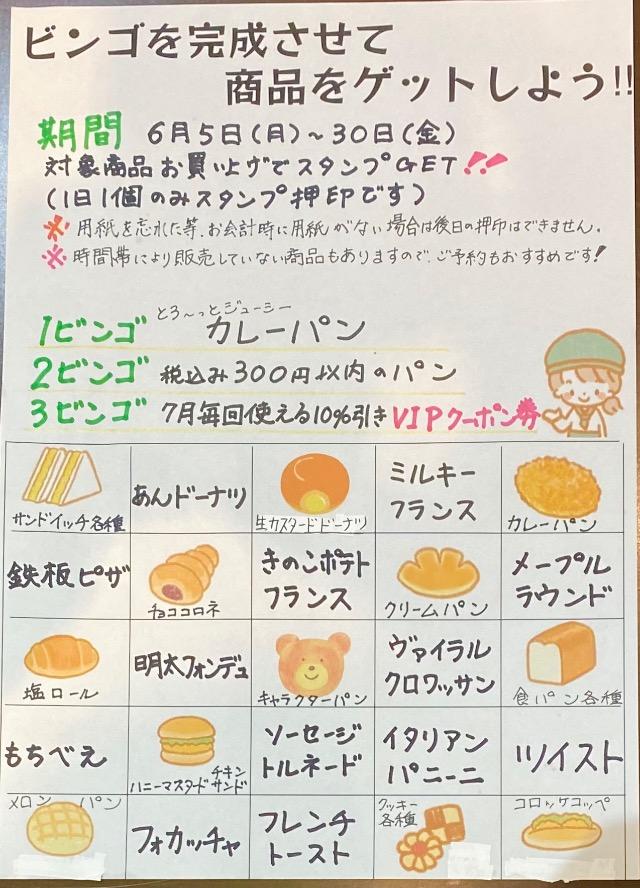 ビンゴを完成させて
商品をゲットしよう!!
期間 6月5日(月)~30日(金)
対象商品お買い上げでスタンプGET!!
(1日1個のみスタンプ押印です)
※用紙を忘れた等、お会計時に用紙がない場合は後日の押印はできません。
※時間帯により販売していない商品もありますので、ご予約もおすすめです!
1ビンゴ とろ~っとジューシー カレーパン
2ビンゴ 税込み300円以内のパン
3ビンゴ 7月毎回使える10%引きVIPクーポン券
サンドイッチ各種
あんドーナツ
生カスタードドーナツ
ミルキー
フランス
カレーパン
鉄板ピザ
チョココロネ
きのこポテト
フランス
クリームパン
メープル
ラウンド
塩ロール
明太フォンデュ
キャラクターパン
ヴァイラル
クロワッサン
食パン各種
もちべえ
チキン
ハニーマスタードサンド
ソーセージ
トルネード
イタリアン
パニーニ
ツイスト
メロンパン
フォカッチャ
フレンチ
トースト
クッキー
各種
コロッケコッペ